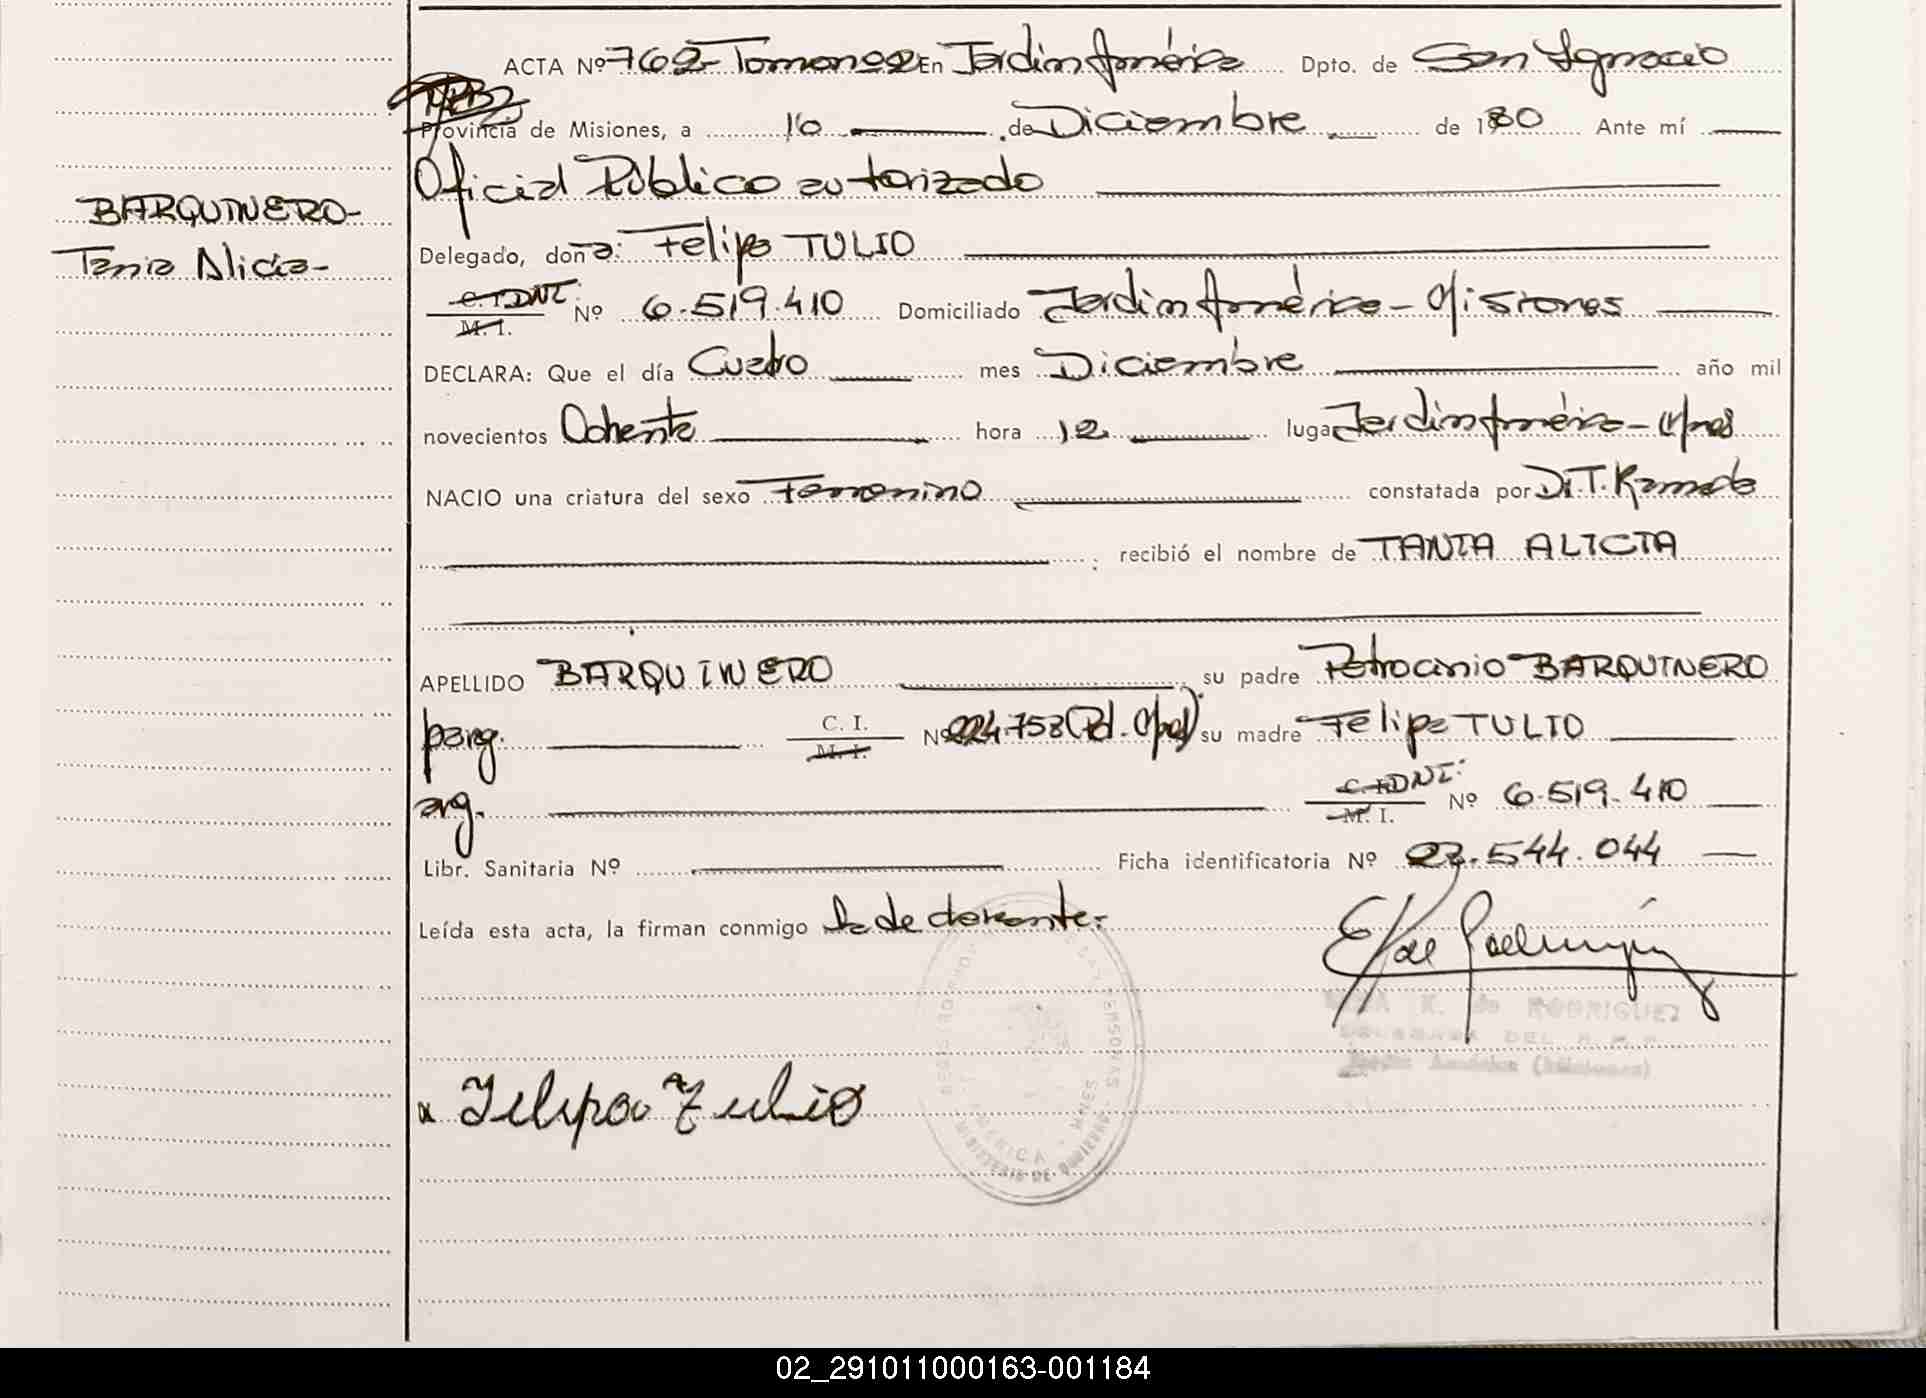 BARQUINERO-
Tania Alicia-
ACTA Nº 762- Tomo nº 2 En Jardín América Dpto. de San Ignacio
Provincia de Misiones, a 10 de Diciembre de 1980 Ante mí
Oficial Público autorizado
Delegado, doña: Felipa TULIO
C.I. DNI: M.I. Nº 6.519.410 Domiciliado Jardín América - Misiones
DECLARA: Que el día Cuatro mes Diciembre año mil
novecientos Ochenta hora 12 lugar Jardín América - Mnes
NACIO una criatura del sexo Femenino constatada por
; recibió el nombre de TANIA ALICIA
APELLIDO BARQUINERO su padre Patrocinio BARQUINERO
parg. C. I. M. I. Nº 224.758 (Pol. Mnes) su madre Felipa TULIO
arg. C. I. DNI: M. I. Nº 6.519.410
Libr. Sanitaria Nº Ficha identificatoria Nº 544.044
Leída esta acta, la firman conmigo la declarante:
K. de RODRIGUEZ
DELEGADA DEL
Jardín América (Misiones)
MINISTERIO DE GOBIERNO - MNES
x Felipa Tulio
02_291011000163-001184